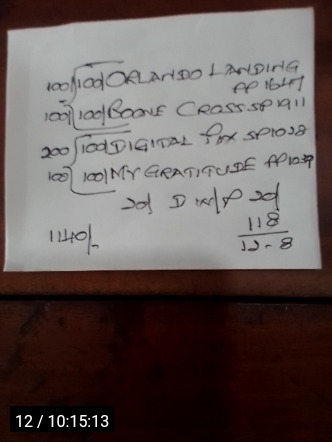 100 100 ORLANDO LANDING
PP 1647
100 100 BOONE CROSS SP 1911
200 100 DIGITAL FOX SP 1028
100 100 MY GRATITUDE PP 1039
20/ D W/P 20/
118
1140/-
12-8
12 / 10:15:13